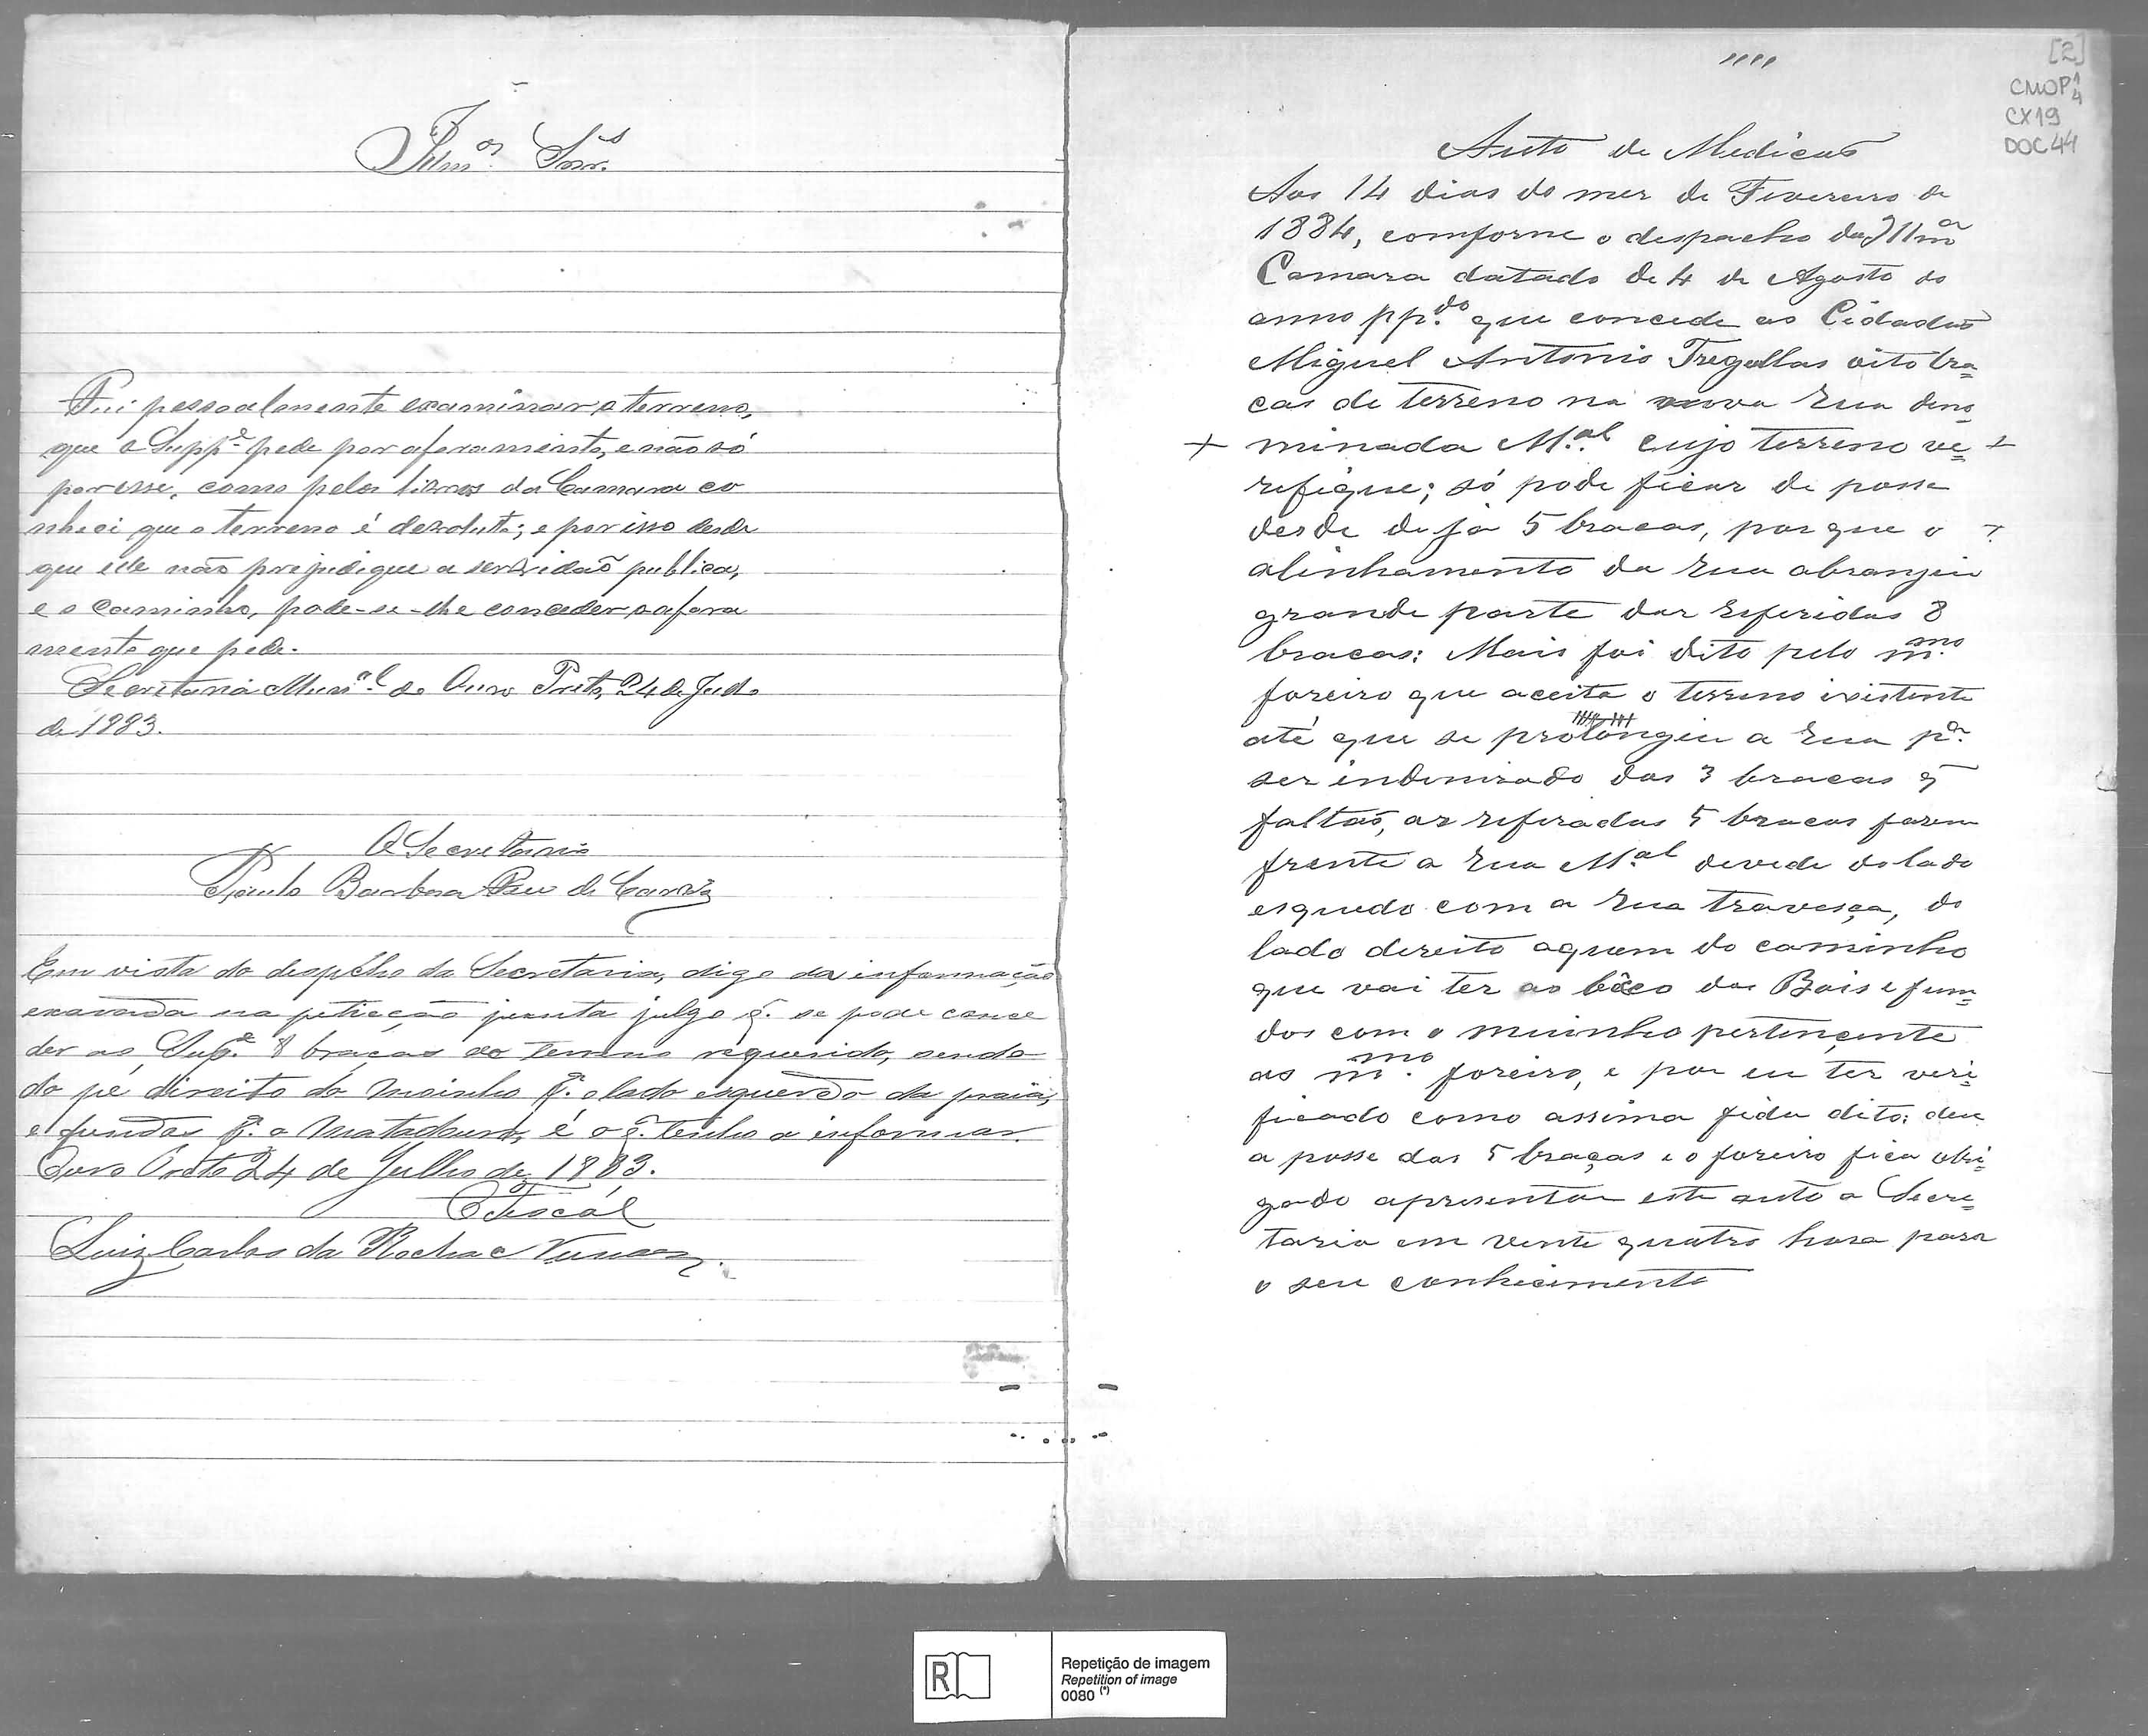 Illmos Snrs.
Fui pessoalmente examinar o terreno,
que o Suppe pede por aforamento, e não só
por esse, como pelos livros da Camara co
nheci que o terreno é devoluto; e por isso desde
que elle não prejudique a servidão publica,
e o caminho, pode-se-lhe conceder o afora
mento que pede.
Secretaria Munal do Ouro Preto, 24 de Julho
de 1883.
O Secretario
Paulo Barbosa de
Em vista do despcho da Secretaria, digo da informação
exarada na peticção junta julgo q. se pode conce
der ao Supe 8 braças do terreno requerido, sendo
do pé direito do Moinho p.a o lado esquerdo da praia,
e fundos p.a o Matadouro, é o q. tenho a informar.
Ouro Preto 24 de Julho de 1883.
O Fiscál
Luiz Carlos da Rocha
[2]
CMOP 1/4
CX19
DOC 44
Auto de Medicaõ
Aos 14 dias do mez de Fevereiro de
1884, comforme o despacho da Illma
Camara datado de 4 de Agosto do
anno pp.do que concede ao Cidadaõ
Miguel Antonio Tregellas oito bra=
cas de terreno na nova Rua deno
+ minada M.al cujo terreno ve= +
refique; só pode ficar de posse
desde de já 5 bracas, por que o +
alinhamento da Rua abrangeu
grande parte das referidas 8
bracas: Mais foi dito pelo m.mo
foreiro que aceita o terreno existente
até que se prolongue a Rua p.a
ser indenizado das 3 bracas q̃
faltaõ, as refiradas 5 bracas fazem
frente a Rua M.al devede do lado
esquedo com a Rua travesça, do
lado direito aquem do caminho
que vai ter ao bêco dos Bois e fun=
dos com o muinho pertinçente
ao m.mo foreiro, e por eu ter veri=
ficado como assima fica dito: deu
a posse das 5 braças e o foreiro fica obri=
gado apresentar este auto a Secre=
taria em vente quatro hora para
o seu conhecimento
R
Repetição de imagem
Repetition of image
0080 (*)